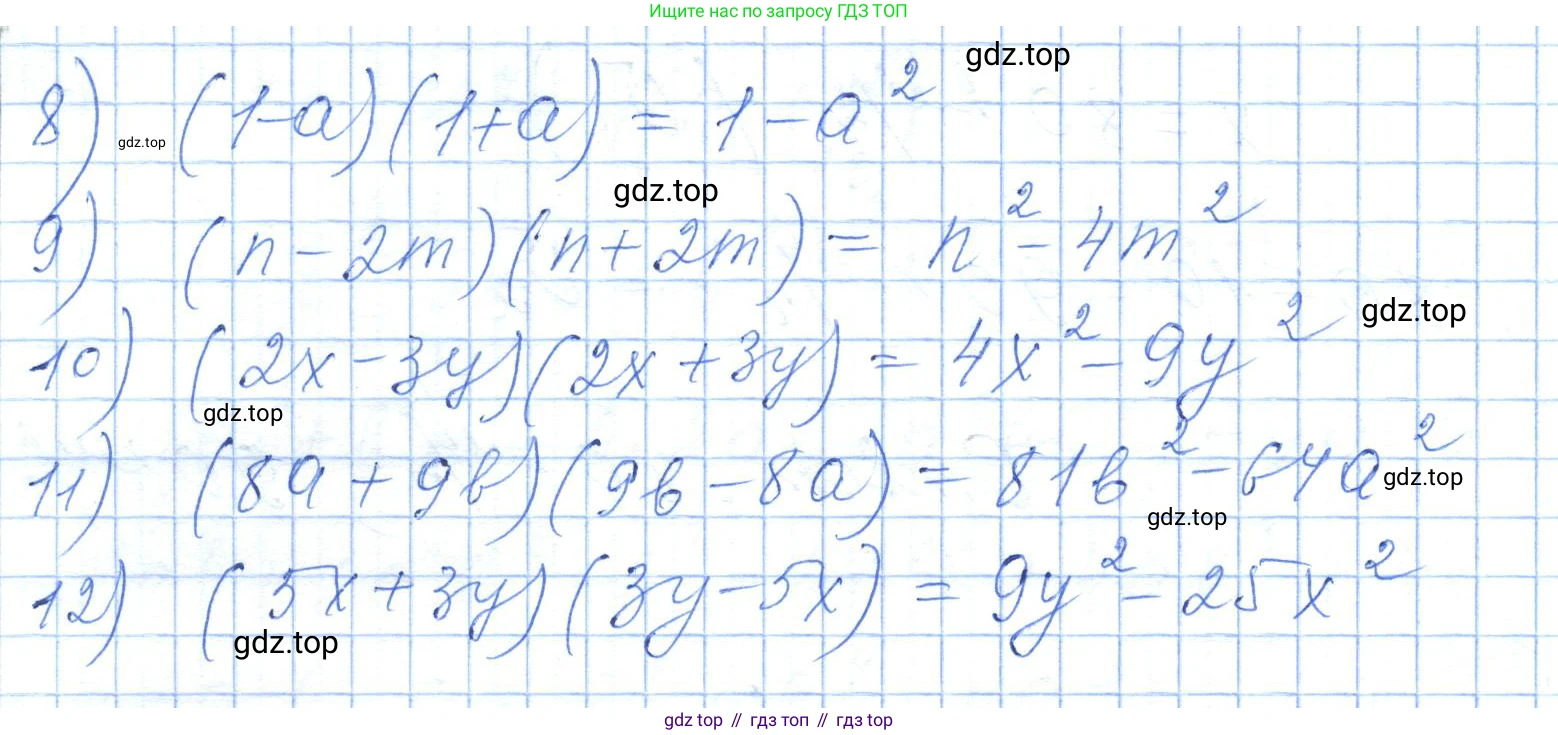 Ищите нас по запросу ГДЗ ТОП
gdz.top
8) gdz.top (1-a)(1+a) = 1-a²
gdz.top
9) (n-2m)(n+2m) = n²-4m²
gdz.top
10) (2x-3y)(2x+3y) = 4x²-9y²
gdz.top
11) (8a+9b)(9b-8a) = 81b²-64a²
gdz.top
gdz.top
12) (5x+3y)(3y-5x) = 9y²-25x²
gdz.top
gdz top // гдз топ // гдз top